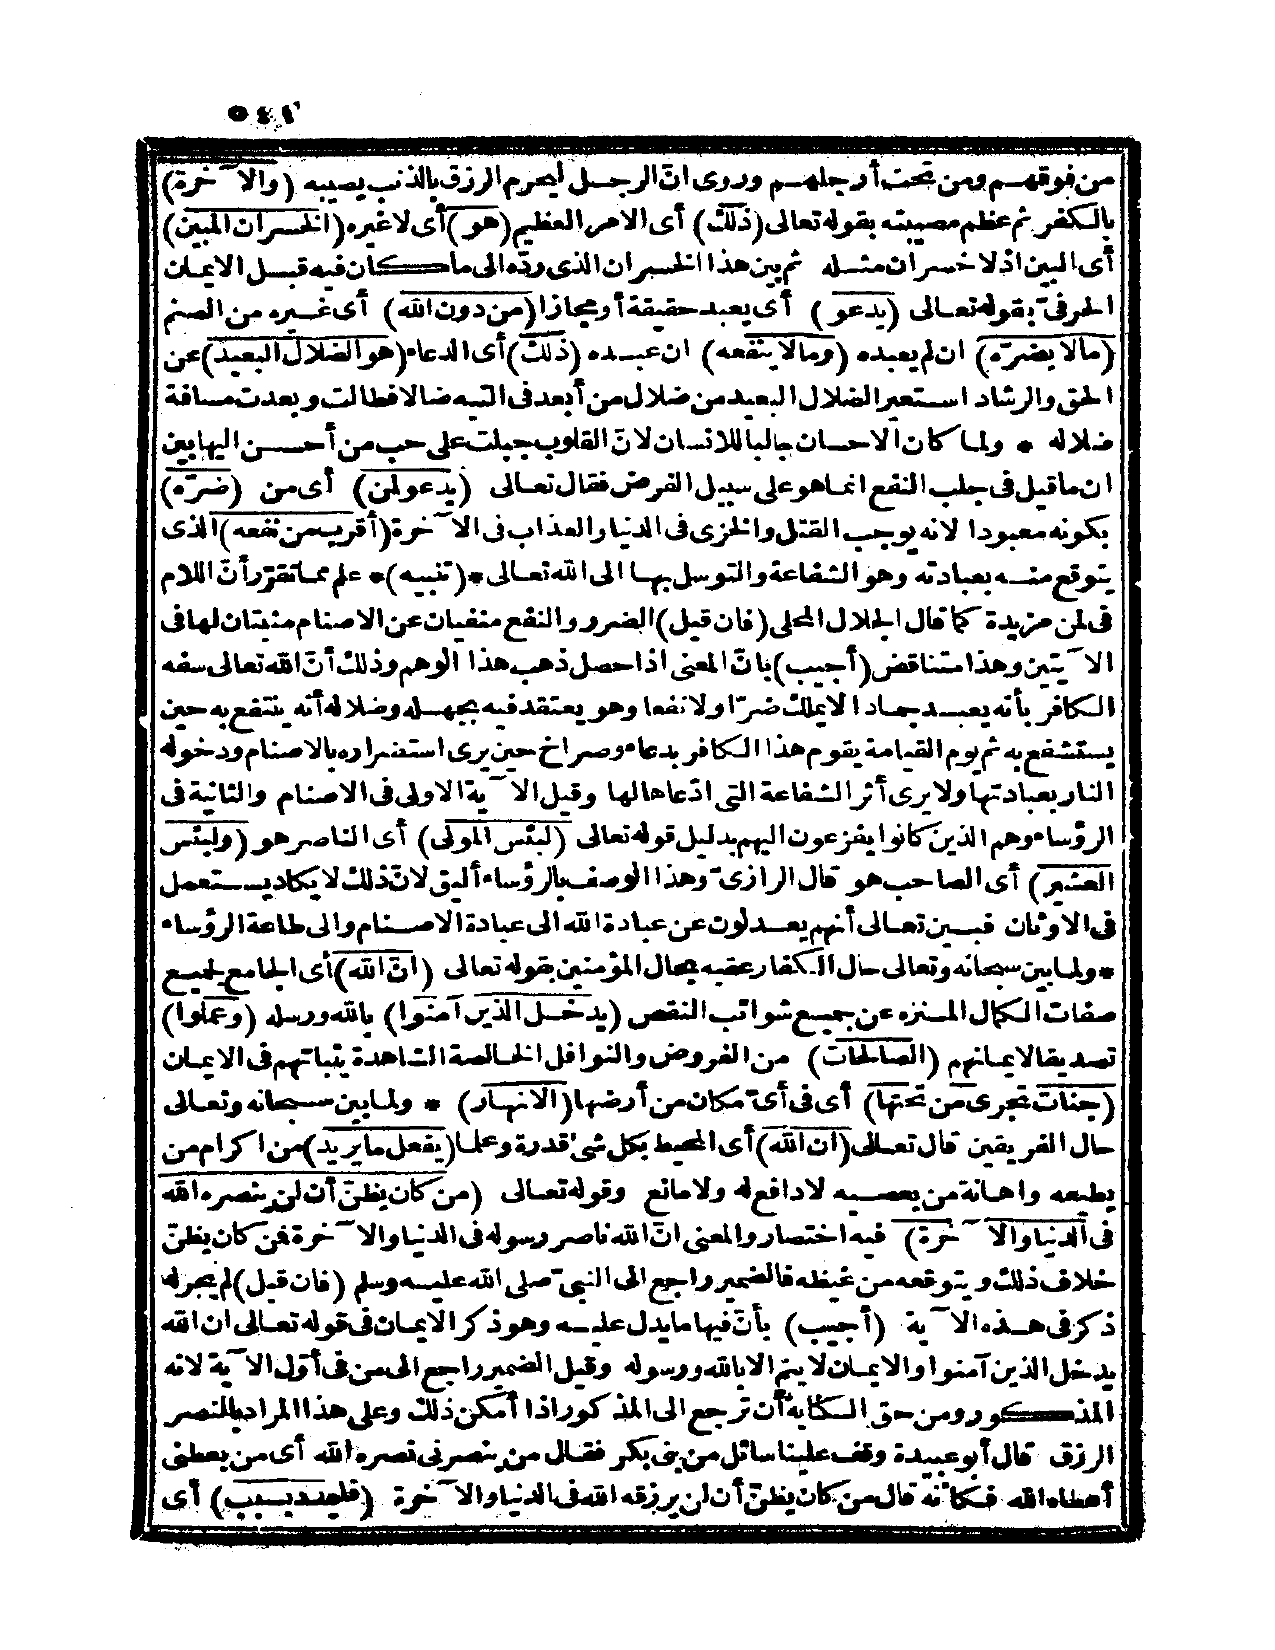 ٥٤٢
من فوقهم ومن تحت أرجلهم وروى انّ الرجل ليحرم الرزق بالذنب يصيبه (والآخرة)
بالكفر ثم عظم مصيبته بقوله تعالى (ذلك) أى الامر العظيم (هو) أى لا غيره (الخسران المبين)
أى البين اذ لا خسران مثله ثم بين هذا الخسران الذى ردّه الى ما كان فيه قبل الايمان
الحرفىّ بقوله تعالى (يدعو) أى يعبد حقيقة أو مجازا (من دون الله) أى غيره من الصنم
(مالا يضرّه) ان لم يعبده (وما لا ينفعه) ان عبده (ذلك) أى الدعاء (هو الضلال البعيد) عن
الحق والرشاد استعير الضلال البعيد من ضلال من أبعد فى التيه ضالا فطالت وبعدت مسافة
ضلاله * ولما كان الاحسان جالبا للانسان لانّ القلوب جبلت على حب من أحسن اليها بين
ان ما قيل فى جلب النفع انما هو على سبيل الفرض فقال تعالى (يدعو لمن) أى من (ضرّه)
بكونه معبودا لانه يوجب القتل والخزى فى الدنيا والعذاب فى الآخرة (أقرب من نفعه) الذى
يتوقع منه بعبادته وهو الشفاعة والتوسل بها الى الله تعالى *(تنبيه)* علم مما تقرّر أنّ اللام
فى لمن مزيدة كما قال الجلال المحلى (فان قيل) الضرر والنفع منفيان عن الاصنام مثبتان لها فى
الآيتين وهذا متناقض (أجيب) بانّ المعنى اذا حصل ذهب هذا الوهم وذلك أنّ الله تعالى سفه
الكافر بأنه يعبد جمادا لا يملك ضرّا ولا نفعا وهو يعتقد فيه بجهله وضلاله أنه ينتفع به حين
يستشفع به ثم يوم القيامة يقوم هذا الكافر بدعاء وصراخ حين يرى استضراره بالاصنام ودخوله
النار بعبادتها ولا يرى أثر الشفاعة التى ادّعاها لها وقيل الآية الاولى فى الاصنام والثانية فى
الرؤساء وهم الذين كانوا يفزعون اليهم بدليل قوله تعالى (لبئس المولى) أى الناصر هو (ولبئس
العشير) أى الصاحب هو قال الرازىّ وهذا الوصف بالرؤساء أليق لانّ ذلك لا يكاد يستعمل
فى الاوثان فبين تعالى أنهم يعدلون عن عبادة الله الى عبادة الاصنام والى طاعة الرؤساء
* ولما بين سبحانه وتعالى حال الكفار عقبه بحال المؤمنين بقوله تعالى (انّ الله) أى الجامع لجميع
صفات الكمال المنزه عن جميع شوائب النقص (يدخل الذين آمنوا) بالله ورسله (وعملوا)
تصديقا لايمانهم (الصالحات) من الفروض والنوافل الخالصة الشاهدة بثباتهم فى الايمان
(جنات تجرى من تحتها) أى فى أىّ مكان من أرضها (الانهار) * ولما بين سبحانه وتعالى
حال الفريقين قال تعالى (ان الله) أى المحيط بكل شئ قدرة وعلما (يفعل ما يريد) من اكرام من
يطيعه واهانة من يعصيه لا دافع له ولا مانع وقوله تعالى (من كان يظنّ أن لن ينصره الله
فى الدنيا والآخرة) فيه اختصار والمعنى انّ الله ناصر رسوله فى الدنيا والآخرة فمن كان يظنّ
خلاف ذلك ويتوقعه من غيظه فالضمير راجع الى النبىّ صلى الله عليه وسلم (فان قيل) لم يجر له
ذكر فى هذه الآية (أجيب) بأنّ فيها ما يدل عليه وهو ذكر الايمان فى قوله تعالى ان الله
يدخل الذين آمنوا والايمان لا يتم الا بالله ورسوله وقيل الضمير راجع الى من فى أوّل الآية لانه
المذكور ومن حق الكناية أن ترجع الى المذكور اذا أمكن ذلك وعلى هذا المراد بالنصر
الرزق قال أبو عبيدة وقف علينا سائل من بنى بكر فقال من ينصرنى نصره الله أى من يعطنى
أعطاه الله فكأنه قال من كان يظنّ أن لن يرزقه الله فى الدنيا والآخرة (فليمدد بسبب) أى